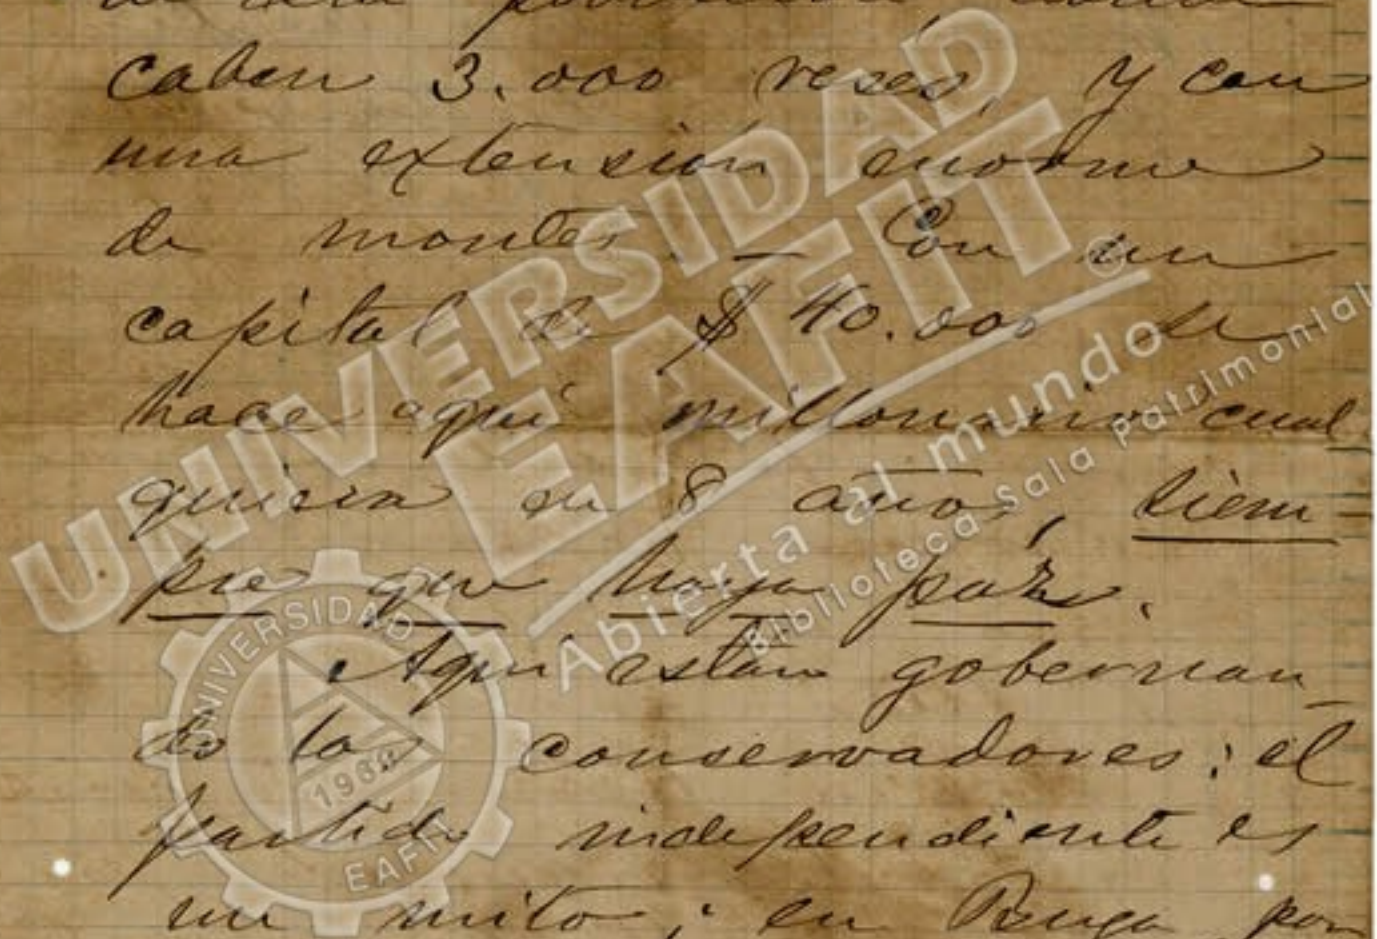 caben 3.000 reses, y con
una extensión enorme
de montes. — Con un
capital de $ 40.000 se
hace aquí millonario cual
quiera en 8 años, siem-
pre que haya paz.
Aquí están gobernan-
do los conservadores: el
partido independiente es
un mito; en Buga por
UNIVERSIDAD
EAFIT
Abierta al mundo
Biblioteca Sala Patrimonial
UNIVERSIDAD
1960
EAFIT